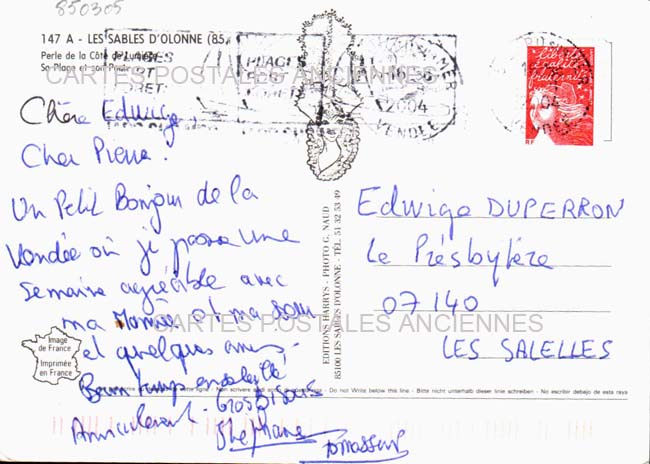 850305
147 A - LES SABLES D'OLONNE (85)
Perle de la Côte de Lumière
Sa Plage et son
CARTES POSTALES ANCIENNES
PLAGES
PORT
FORET
PLAGES
2004
VENDEE
liberté
égalité
fraternité
RF
Chère Edwige,
Cher Pierre.
Un Petit Bonjour de la
Vendée où je passe une
Semaine agréable avec
ma Mamie et ma soeur
et quelques amis.
Beau temps ensoleillé
Amicalement. Gros BISOUS
Stéphane
EDITIONS HARRYS - PHOTO G. NAUD
85100 LES SABLES D'OLONNE - TÉL. 51 32 53 49
Edwige DUPERRON
Le Présbytère
07140
LES SALELLES
CARTES POSTALES ANCIENNES
Image
de France
Imprimée
en France
Non scrivere sotto - Do not Write below this line - Bitte nicht unterhalb dieser linie schreiben - No escribir debajo de esta raya